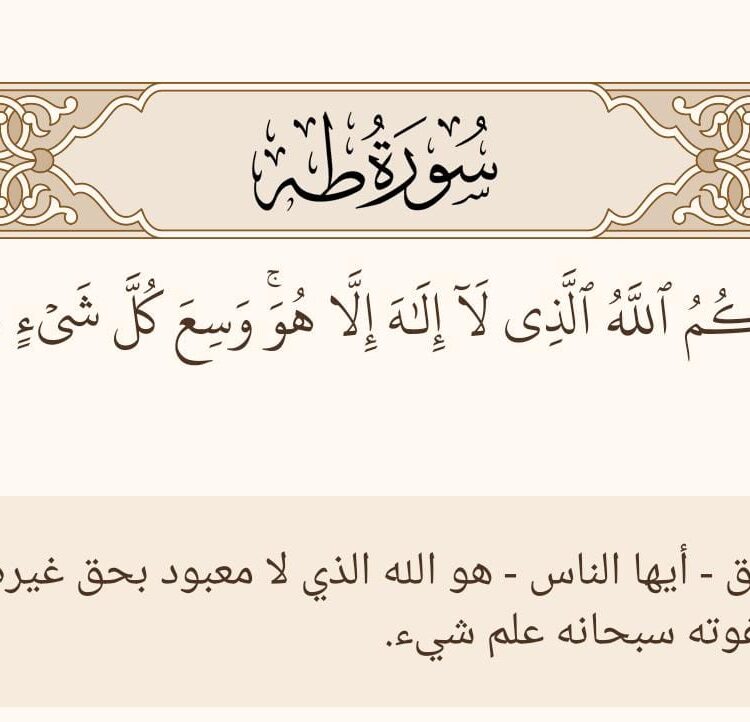 سُورَةُ طه
ٱللَّهُ ٱلَّذِى لَآ إِلَـٰهَ إِلَّا هُوَۚ وَسِعَ كُلَّ شَىْءٍ
- أيها الناس - هو الله الذي لا معبود بحق غيره
سبحانه علم شيء.